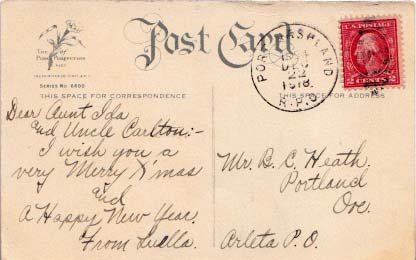 Post Card
The
of
Pure Perfection
Series No. 6600
THIS SPACE FOR CORRESPONDENCE
THIS SPACE FOR ADDRESS
PORT ASHLAND
R.P.O.
2 CENTS 2
Dear Aunt Ida
and Uncle Carlton:-
I wish you a
very Merry X'mas
and
A Happy New Year.
From Luella.
Mr. B. C. Heath.
Portland
Ore.
Arleta P.O.